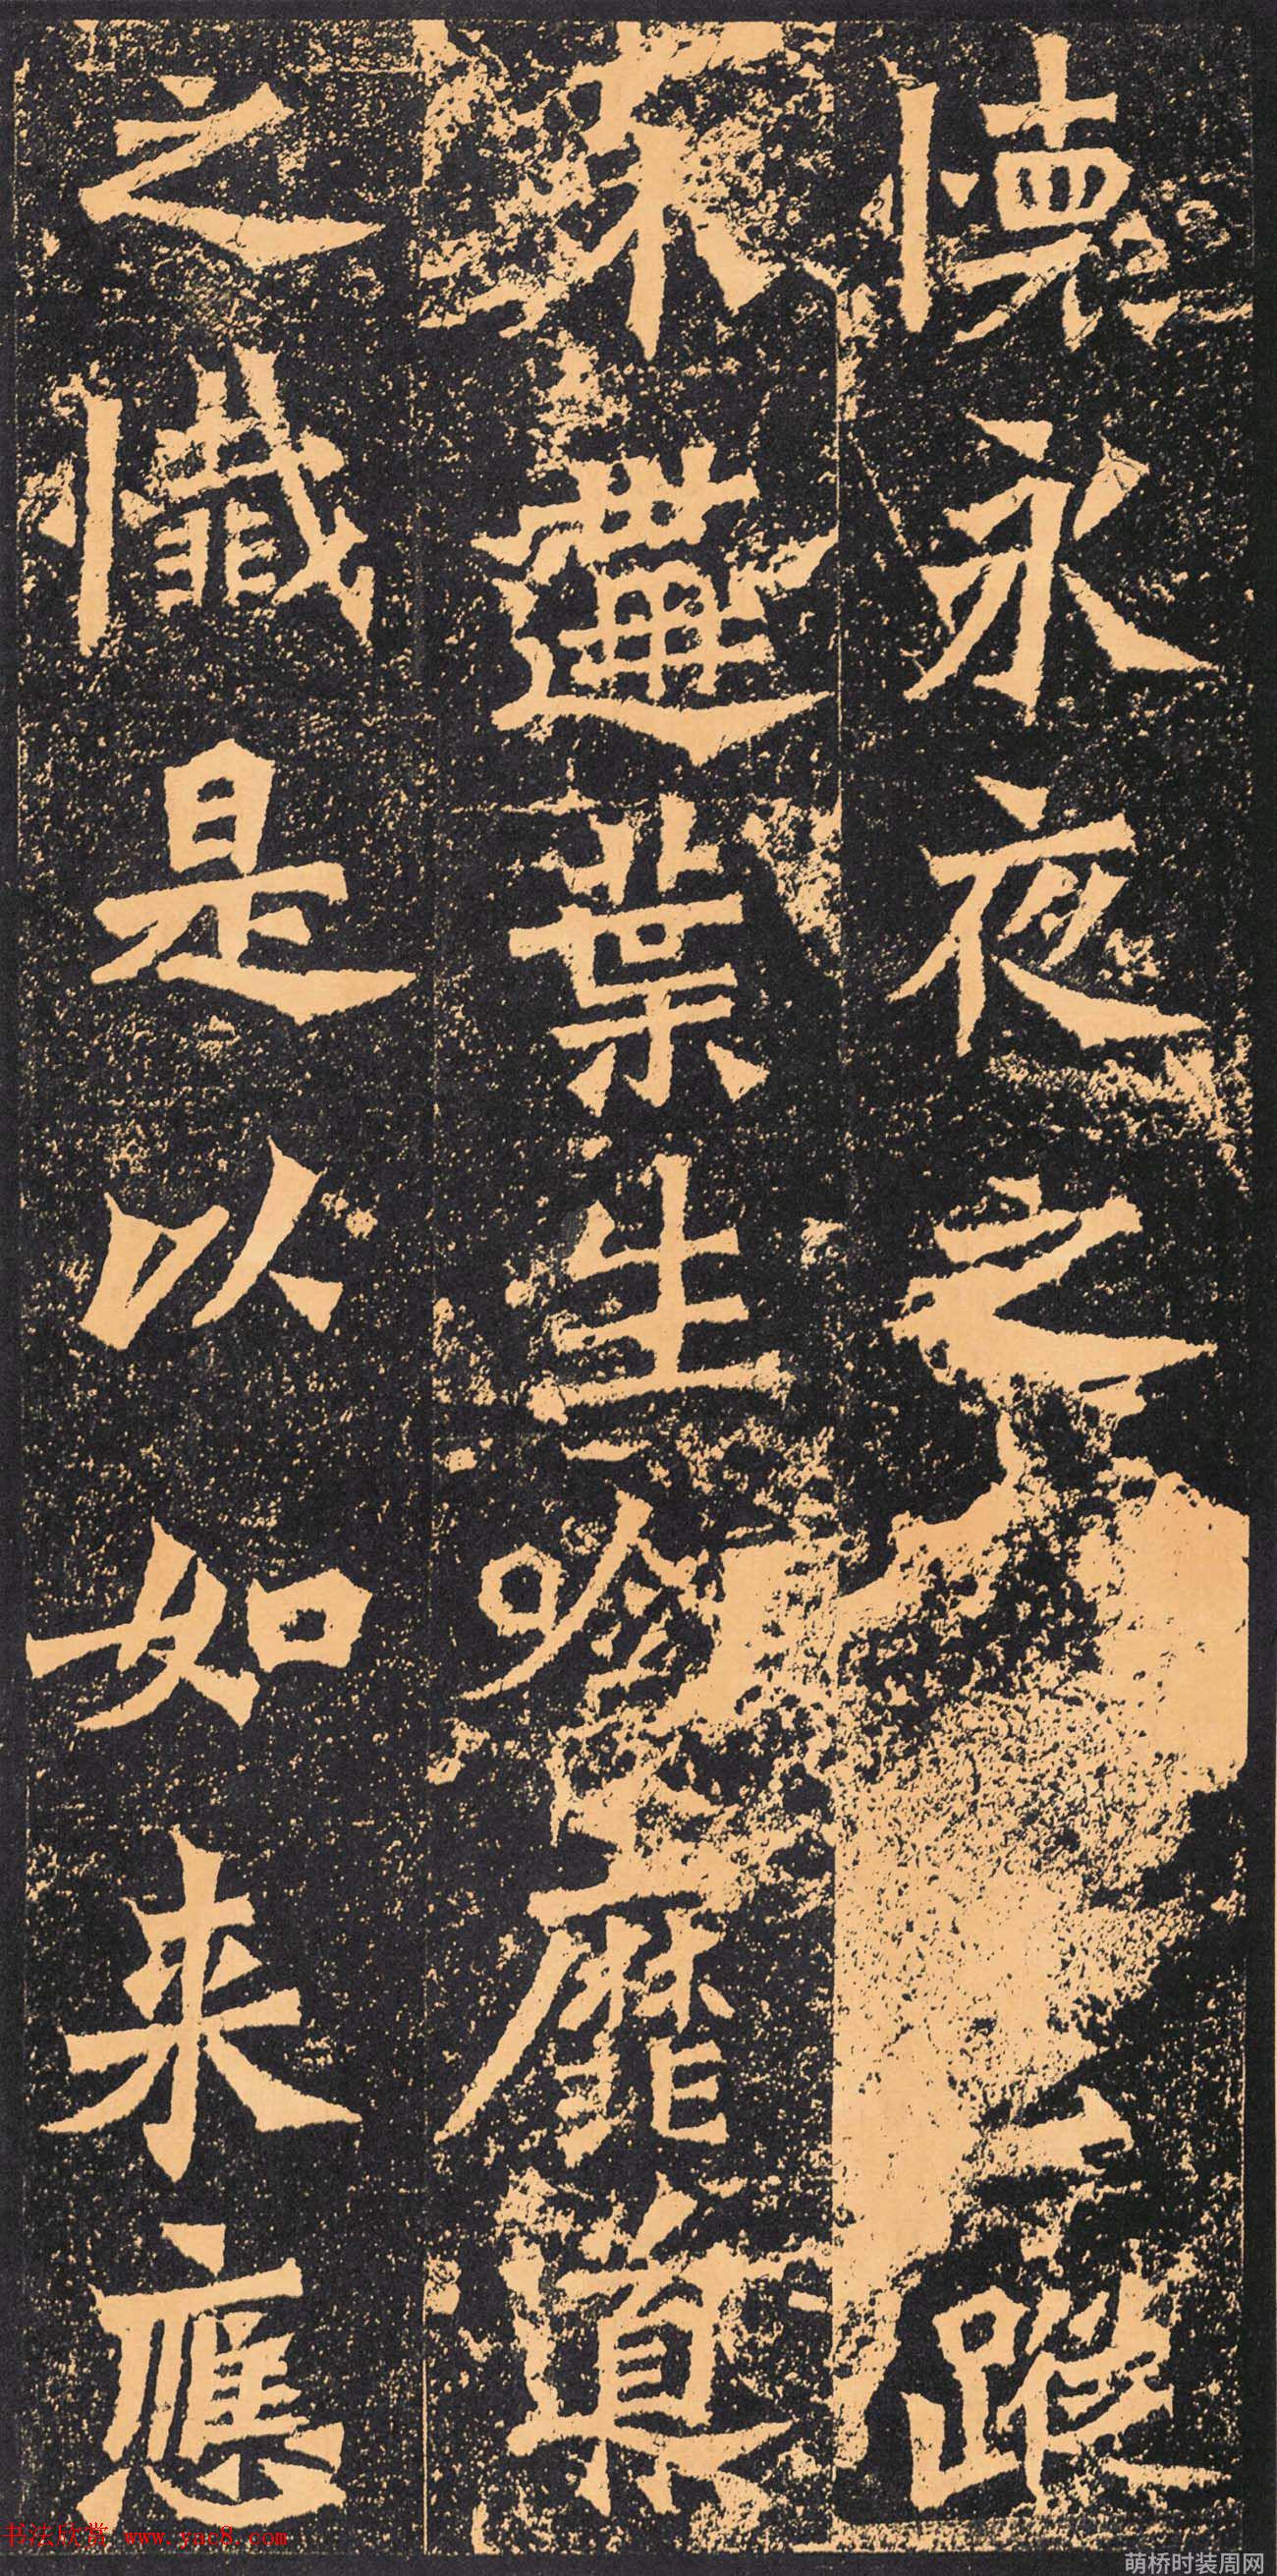 懷永夜之蹤
不遘葉生唅靡導
之懺是以如来應
书法欣赏 www.yac8.com
萌桥时装周网